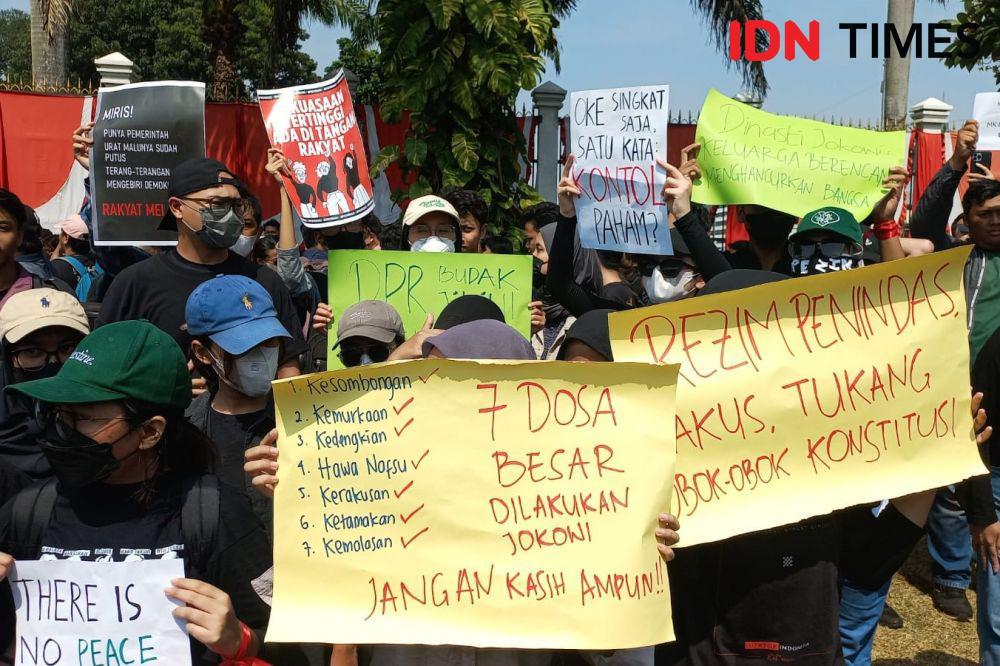 IDN TIMES
MIRIS!
PUNYA PEMERINTAH
URAT MALUNYA SUDAH
PUTUS
TERANG-TERANGAN
MENGEBIRI DEMOK
RAKYAT MEL
KUASAAN
ERTINGGI
ADA DI TANGAN
RAKYAT
OKE SINGKAT
SAJA,
SATU KATA:
KONTOL
PAHAM?
DINASTI JOKOWI:
KELUARGA BERENCANA
MENGHANCURKAN BANGSA
DPR BUDAK
REZIM PENINDAS,
AKUS, TUKANG
OBOK-OBOK KONSTITUSI
1. KESOMBONGAN ✓
2. KEMURKAAN ✓
3. KEDENGKIAN ✓
4. HAWA NAFSU ✓
5. KERAKUSAN ✓
6. KETAMAKAN ✓
7. KEMALASAN ✓
7 DOSA
BESAR
DILAKUKAN
JOKOWI
JANGAN KASIH AMPUN!!
THERE IS
NO PEACE